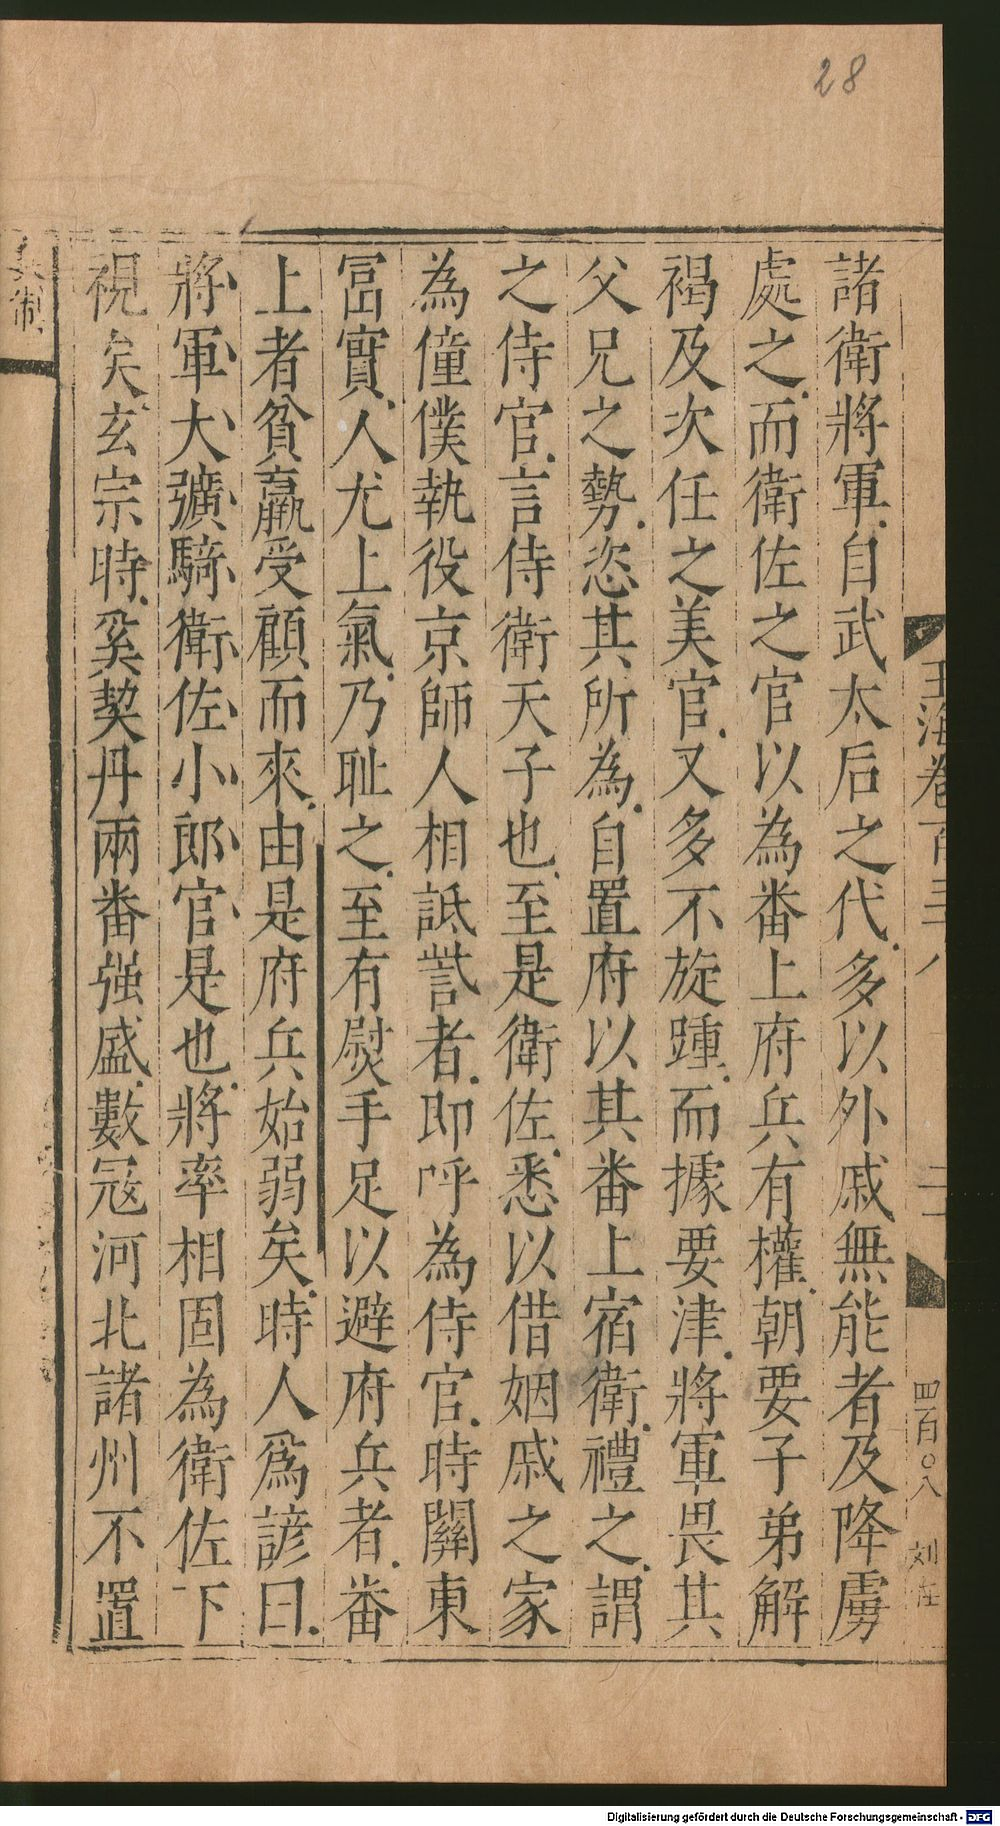 28
玉海卷一百三十八
四百〇八
諸衛將軍自武太后之代多以外戚無能者及降虜
處之而衛佐之官以為番上府兵有權朝要子弟解
褐及次任之美官又多不旋踵而據要津將軍畏其
父兄之勢恣其所為自置府以其番上宿衛禮之謂
之侍官言侍衛天子也至是衛佐悉以借姻戚之家
為僮僕執役京師人相詆訾者即呼為侍官時關東
冨實人尤上氣乃耻之至有熨手足以避府兵者番
上者貧羸受顧而來由是府兵始弱矣時人爲諺曰
將軍大彍騎衛佐小郎官是也將率相固為衛佐下
視矣玄宗時奚契丹兩番强盛數冦河北諸州不置
兵制
Digitalisierung gefördert durch die Deutsche Forschungsgemeinschaft - DFG